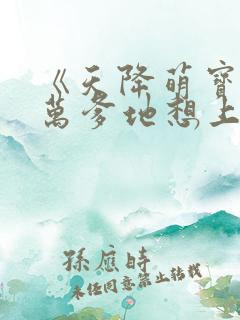 《天降萌寶
萬爹地想上
孫應時
未經同意禁止轉載